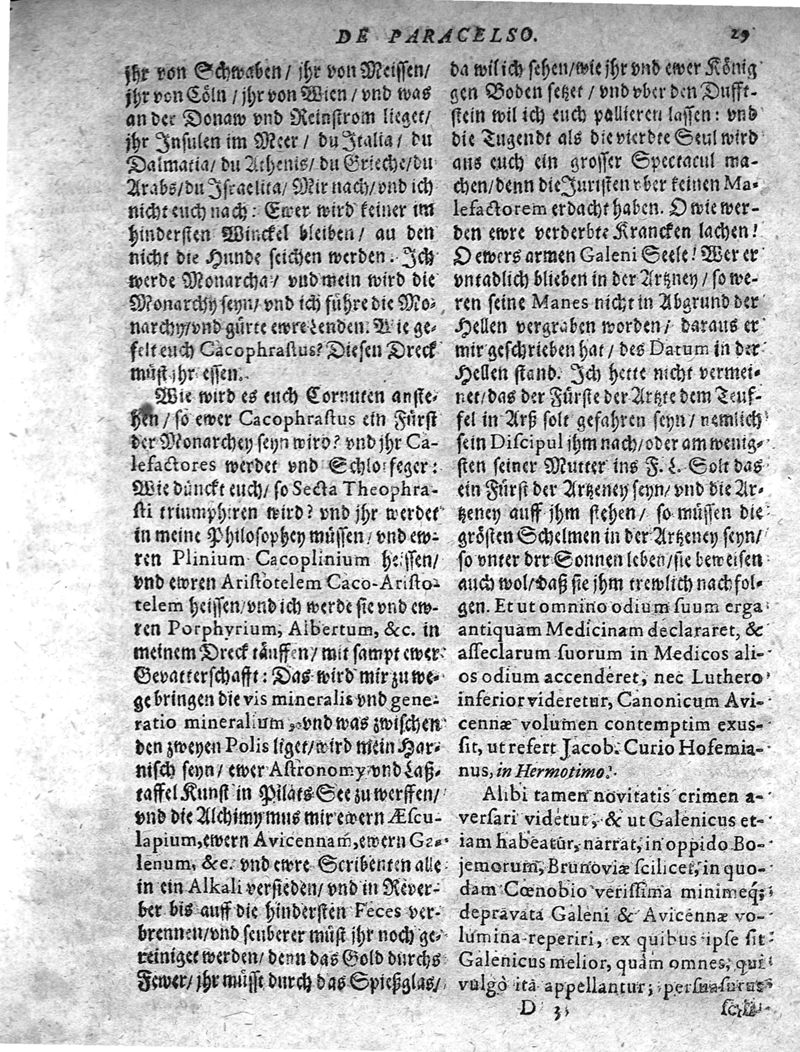 DE PARACELSO. 29
jhr von Schwaben/ jhr von Meissen/
jhr von Cöln/ jhr von Wien/ vnd was
an der Donaw vnd Reinstrom lieget/
jhr Insulen im Meer/ du Italia/ du
Dalmatia/ du Athenis/ du Grieche/ du
Arabs/ du Israelita/ Mir nach/ vnd ich
nicht euch nach: Ewer wird keiner im
hindersten Winckel bleiben/ an den
nicht die Hunde seichen werden. Ich
werde Monarcha/ vnd mein wird die
Monarchy seyn/ vnd ich führe die Mo-
narchy/ vnd gürte ewre Lenden. Wie ge-
felt euch Cacophrastus? Diesen Dreck
müst jhr essen.
Wie wird es euch Cornuten anste-
hen/ so ewer Cacophrastus ein Fürst
der Monarchey seyn wird? vnd jhr Ca-
lefactores werdet vnd Schlotfeger:
Wie dünckt euch/ so Secta Theophra-
sti triumphiren wird? vnd jhr werdet
in meine Philosophey müssen/ vnd ew-
ren Plinium Cacoplinium heissen/
vnd ewren Aristotelem Caco-Aristo-
telem heissen/ vnd ich werde sie vnd ew-
ren Porphyrium, Albertum, &c. in
meinem Dreck täuffen/ mit sampt ewer
Gevatterschafft: Das wird mir zu we-
ge bringen die vis mineralis vnd gene-
ratio mineralium, vnd was zwischen
den zweyen Polis liget/ wird mein Har-
nisch seyn/ ewer Astronomy vnd Laß-
taffel Kunst in Pilats See zu werffen/
vnd die Alchimy mus mir ewern Æscu-
lapium, ewern Avicennam, ewern Ga-
lenum, &c. vnd ewre Scribenten alle
in ein Alkali versieden/ vnd in Rever-
ber bis auff die hindersten Feces ver-
brennen/ vnd seuberer müst jhr noch ge-
reiniget werden/ denn das Gold durchs
Fewer/ jhr müsst durch das Spießglas/
da wil ich sehen/ wie jhr vnd ewer König
gen Boden setzet/ vnd vber den Dufft-
stein wil ich euch pallieren lassen: vnd
die Tugendt als die vierdte Seul wird
aus euch ein grosser Spectacul ma-
chen/ denn die Juristen vber keinen Ma-
lefactorem erdacht haben. O wie wer-
den ewre verderbte Krancken lachen!
O ewers armen Galeni Seele! Wer er
vntadlich blieben in der Artzney/ so we-
ren seine Manes nicht in Abgrund der
Hellen vergraben worden/ daraus er
mir geschrieben hat/ des Datum in der
Hellen stand. Ich hette nicht vermei-
net/ das der Fürste der Artzte dem Teuf-
fel in Arß solt gefahren seyn/ nemlich
sein Discipul jhm nach/ oder am wenig-
sten seiner Mutter ins F. L. Solt das
ein Fürst der Artzeney seyn/ vnd die Ar-
tzeney auff jhm stehen/ so müssen die
grösten Schelmen in der Artzeney seyn/
so vnter drr Sonnen leben/ sie beweisen
auch wol/ daß sie jhm trewlich nachfol-
gen. Et ut omnino odium suum erga
antiquam Medicinam declararet, &
asseclarum suorum in Medicos ali-
os odium accenderet, nec Luthero
inferior videretur, Canonicum Avi-
cennæ volumen contemptim exus-
sit, ut refert Jacob. Curio Hofemia-
nus, in Hermotimo.
Alibi tamen novitatis crimen a-
versari videtur, & ut Galenicus et-
iam habeatur, narrat, in oppido Bo-
jemorum, Brunoviæ scilicet, in quo-
dam Cœnobio verissima minimeq;
depravata Galeni & Avicennæ vo-
lumina reperiri, ex quibus ipse sit
Galenicus melior, quàm omnes, qui
vulgò ità appellantur; persuasurus
D 3